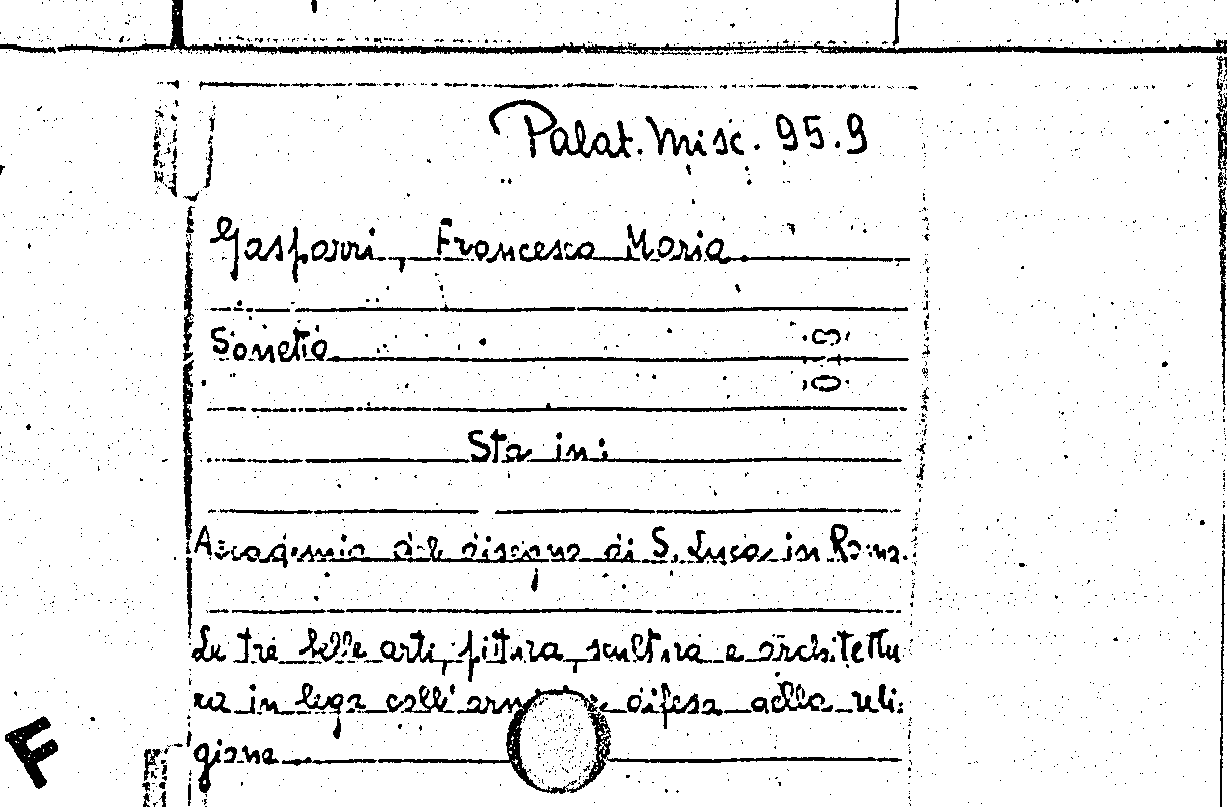 Palat. Misc. 95.9
Gasparri, Francesco Maria.
Sonetto
Sta in:
Accademia del disegno di S. Luca in Roma.
Le tre belle arti, pittura, scultura e architettu
ra in lega coll' difesa della reli-
gione
F